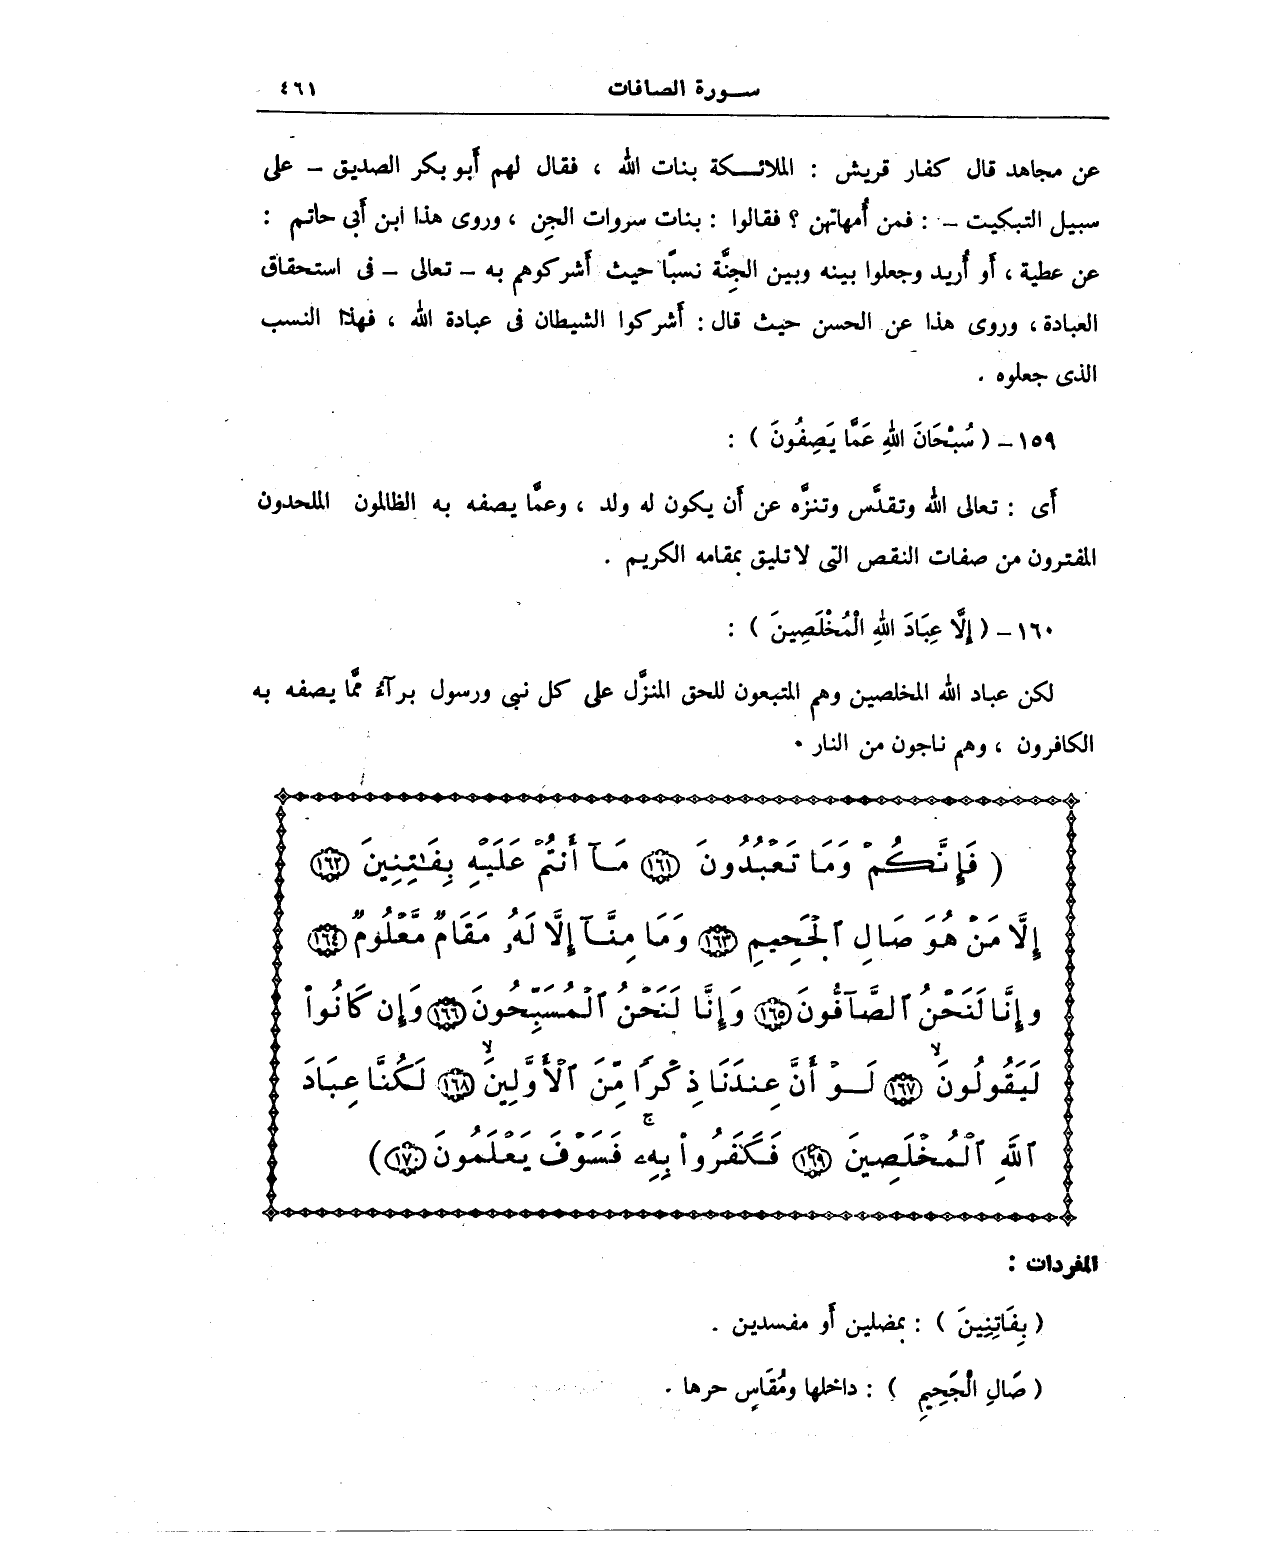 سورة الصافات ٤٦١
عن مجاهد قال كفار قريش : الملائكة بنات الله ، فقال لهم أبو بكر الصديق - على
سبيل التبكيت - : فمن أُمهاتهن ؟ فقالوا : بنات سروات الجن ، وروى هذا ابن أبى حاتم :
عن عطية ، أو أُريد وجعلوا بينه وبين الجِنَّة نسبًا حيث أشركوهم به - تعالى - فى استحقاق
العبادة ، وروى هذا عن الحسن حيث قال : أشركوا الشيطان فى عبادة الله ، فهذا النسب
الذى جعلوه .
١٥٩ - ( سُبْحَانَ اللهِ عَمَّا يَصِفُونَ ) :
أى : تعالى الله وتقدَّس وتنزَّه عن أن يكون له ولد ، وعمَّا يصفه به الظالمون الملحدون
المفترون من صفات النقص التى لا تليق بمقامه الكريم .
١٦٠ - ( إِلَّا عِبَادَ اللهِ الْمُخْلَصِينَ ) :
لكن عباد الله المخلصين وهم المتبعون للحق المنزَّل على كل نبى ورسول برآءُ ممَّا يصفه به
الكافرون ، وهم ناجون من النار .
( فَإِنَّكُمْ وَمَا تَعْبُدُونَ ١٦١ مَآ أَنتُمْ عَلَيْهِ بِفَٰتِنِينَ ١٦٢
إِلَّا مَنْ هُوَ صَالِ ٱلْجَحِيمِ ١٦٣ وَمَا مِنَّآ إِلَّا لَهُۥ مَقَامٌ مَّعْلُومٌ ١٦٤
وَإِنَّا لَنَحْنُ ٱلصَّآفُّونَ ١٦٥ وَإِنَّا لَنَحْنُ ٱلْمُسَبِّحُونَ ١٦٦ وَإِن كَانُوا۟
لَيَقُولُونَ ۙ ١٦٧ لَوْ أَنَّ عِندَنَا ذِكْرًا مِّنَ ٱلْأَوَّلِينَ ۙ ١٦٨ لَكُنَّا عِبَادَ
ٱللَّهِ ٱلْمُخْلَصِينَ ١٦٩ فَكَفَرُوا۟ بِهِۦ ۚ فَسَوْفَ يَعْلَمُونَ ١٧٠ )
المفردات :
( بِفَاتِنِينَ ) : بمضلين أو مفسدين .
( صَالِ الْجَحِيمِ ) : داخلها ومُقَاسٍ حرها .